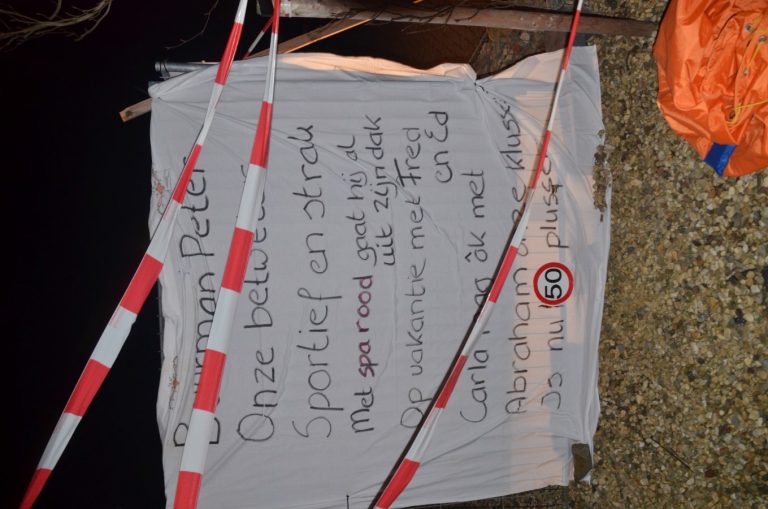 Buurman Peter
Onze betweter
Sportief en strak
Met spa rood gaat hij al
uit zijn dak
Op vakantie met Fred
en Ed
Carla mag ôk met
Abraham onze klusser
Is nu 50 plusser